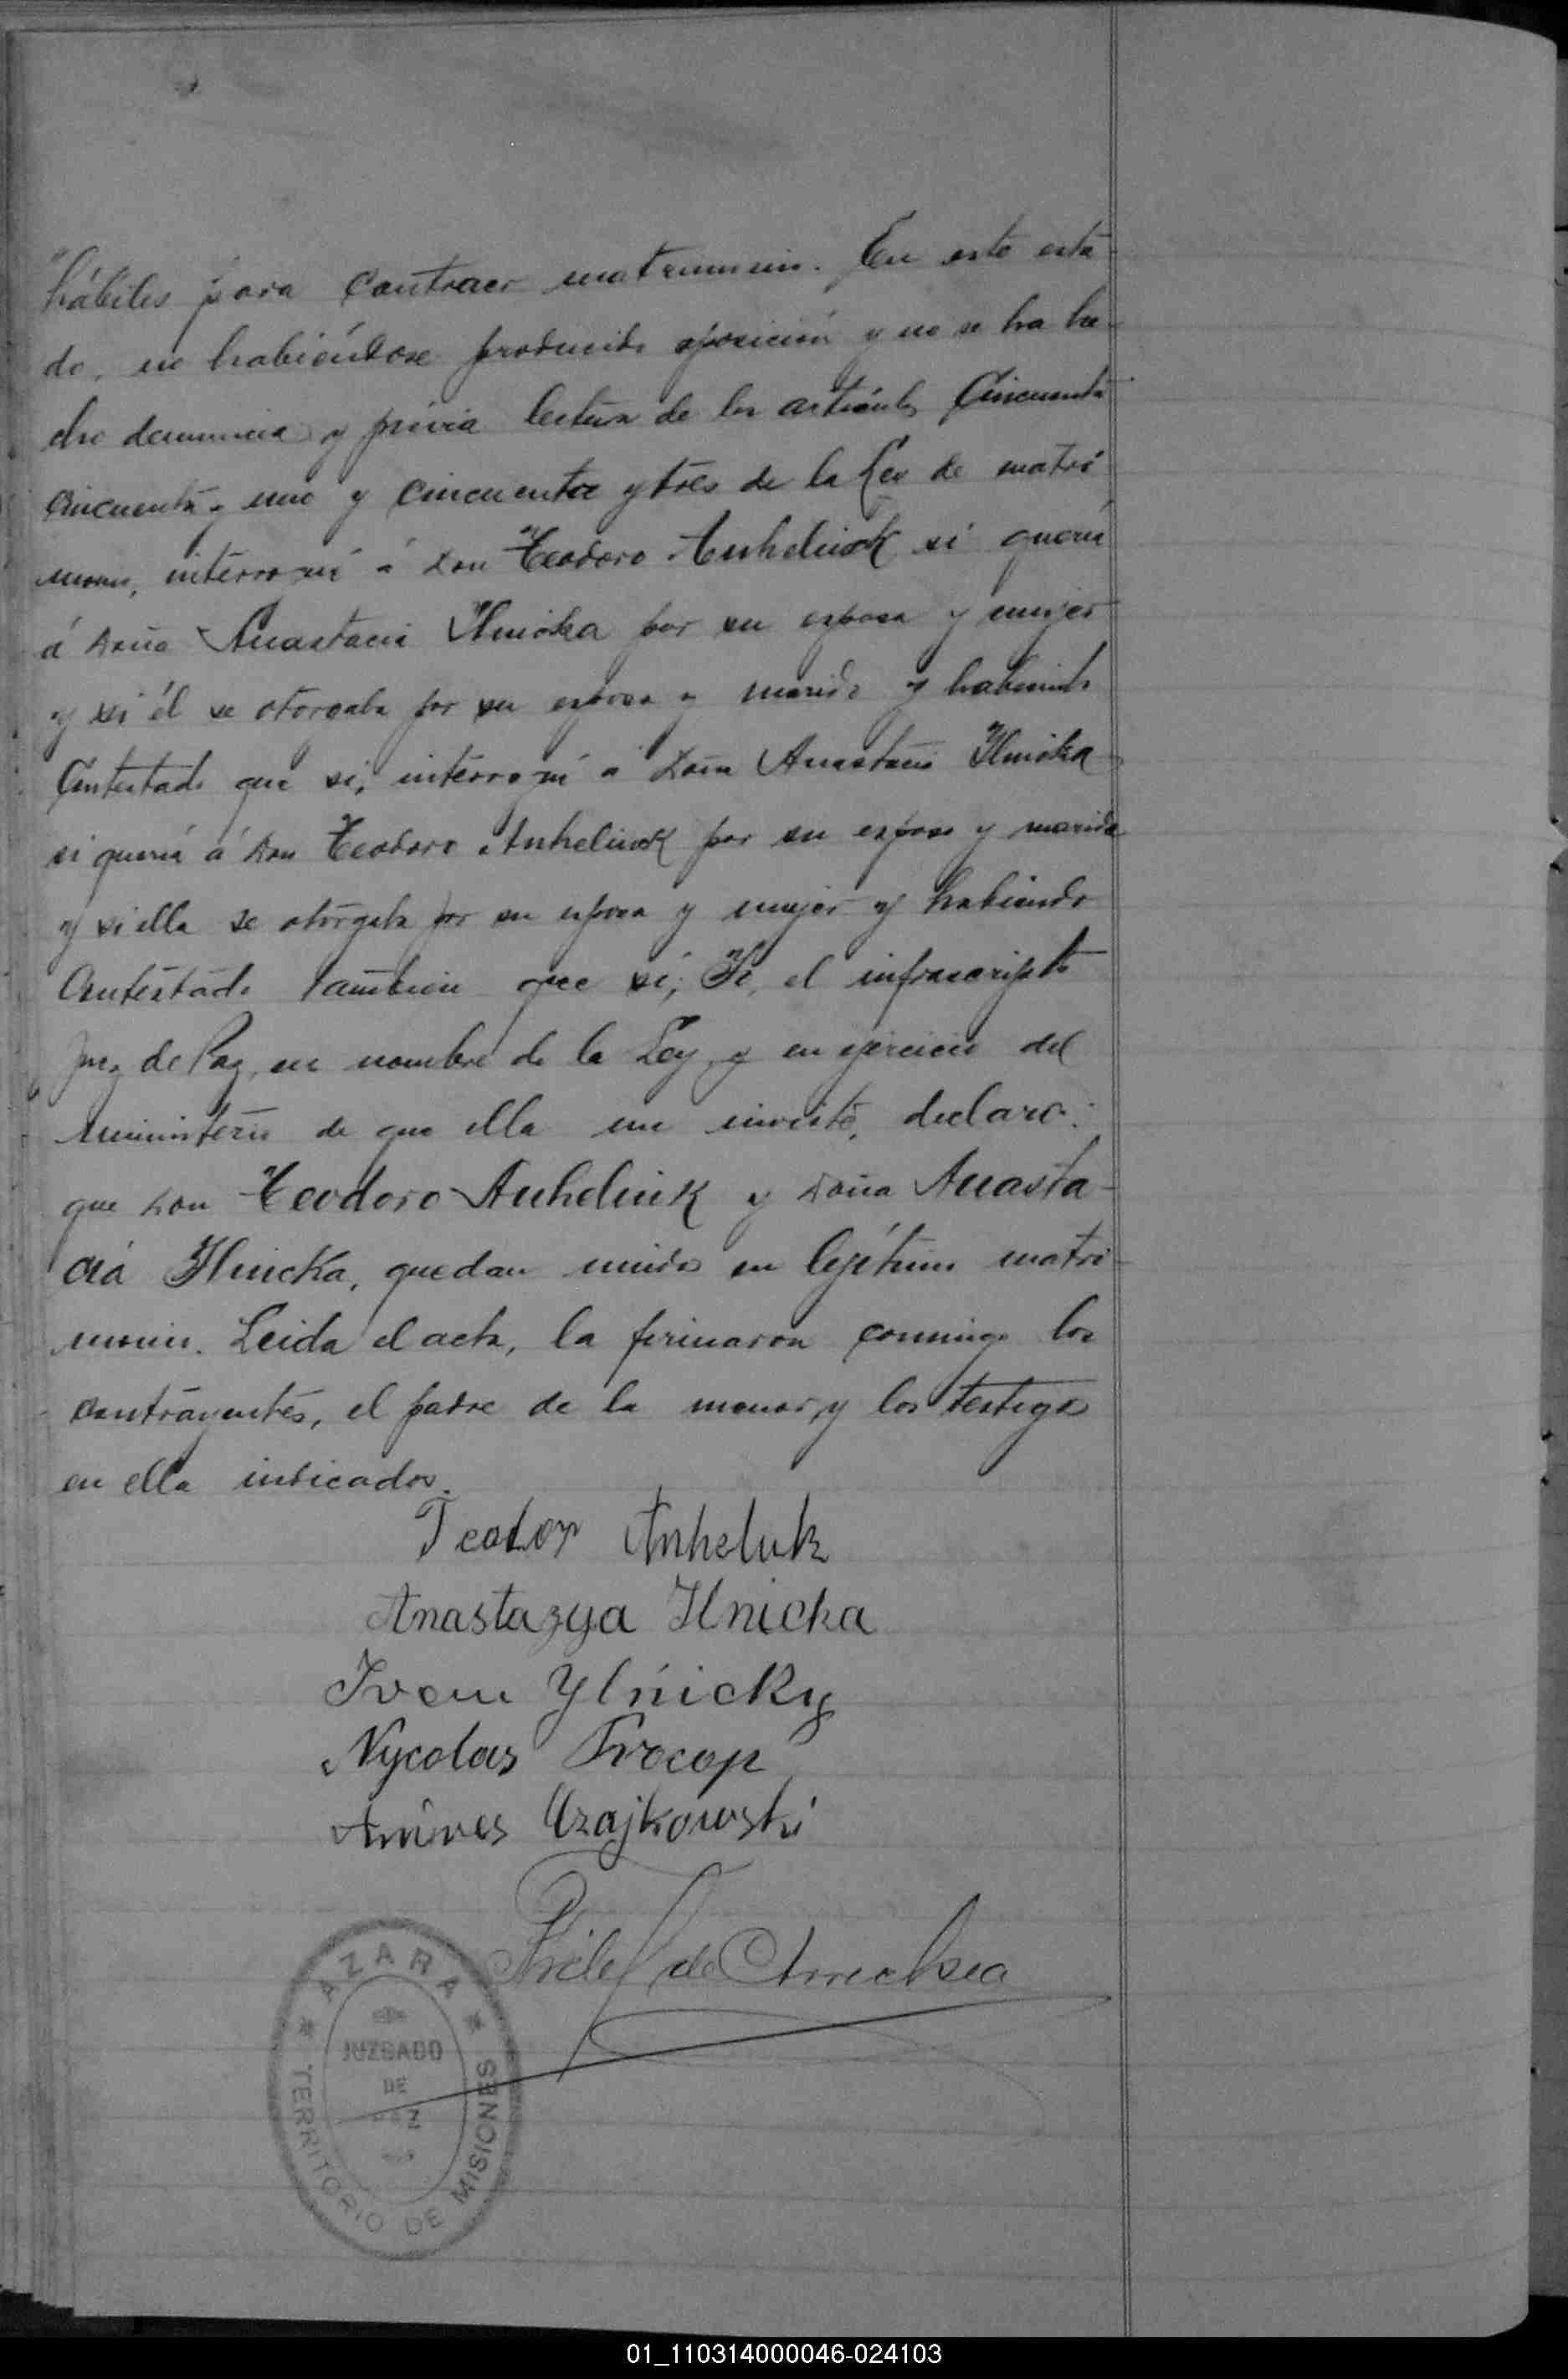 hábiles para contraer matrimonio. En este esta-
do, no habiéndose producido oposición y no se ha he-
cho denuncia y prévia lectura de los artículos Cincuenta
cincuenta y uno y cincuenta y tres de la Ley de matri-
monio, interrogué á don Teodoro Anheliuk si quería
á doña Anastacia Ilnicka por su esposa y mujer
y si él se otorgaba por su esposo y marido y habiendo
Contestado que si, interrogué a doña Anastacia Ilnicka
si quería á don Teodoro Anheliuk por su esposo y marido
y si ella se otorgaba por su esposa y mujer y habiendo
Contestado tambien que sí; Yo, el infrascripto
Juez de Paz, en nombre de la Ley, y en ejercicio del
ministerio de que ella me inviste, declaro:
que don Teodoro Anheliuk y doña Anasta-
cia Ilnicka, quedan unidos en legítimo matri-
monio. Leida el acta, la firmaron conmigo los
contrayentes, el padre de la menor, y los testigos
en ella indicados.
Teodor Anheluk
Anastazya Ilnicka
Ivan Ylnicky
Nycolas Procop
Andres Czajkowski
Fidel de Amechsea
AZARA
JUZGADO
DE
PAZ
TERRITORIO DE MISIONES
01_110314000046-024103